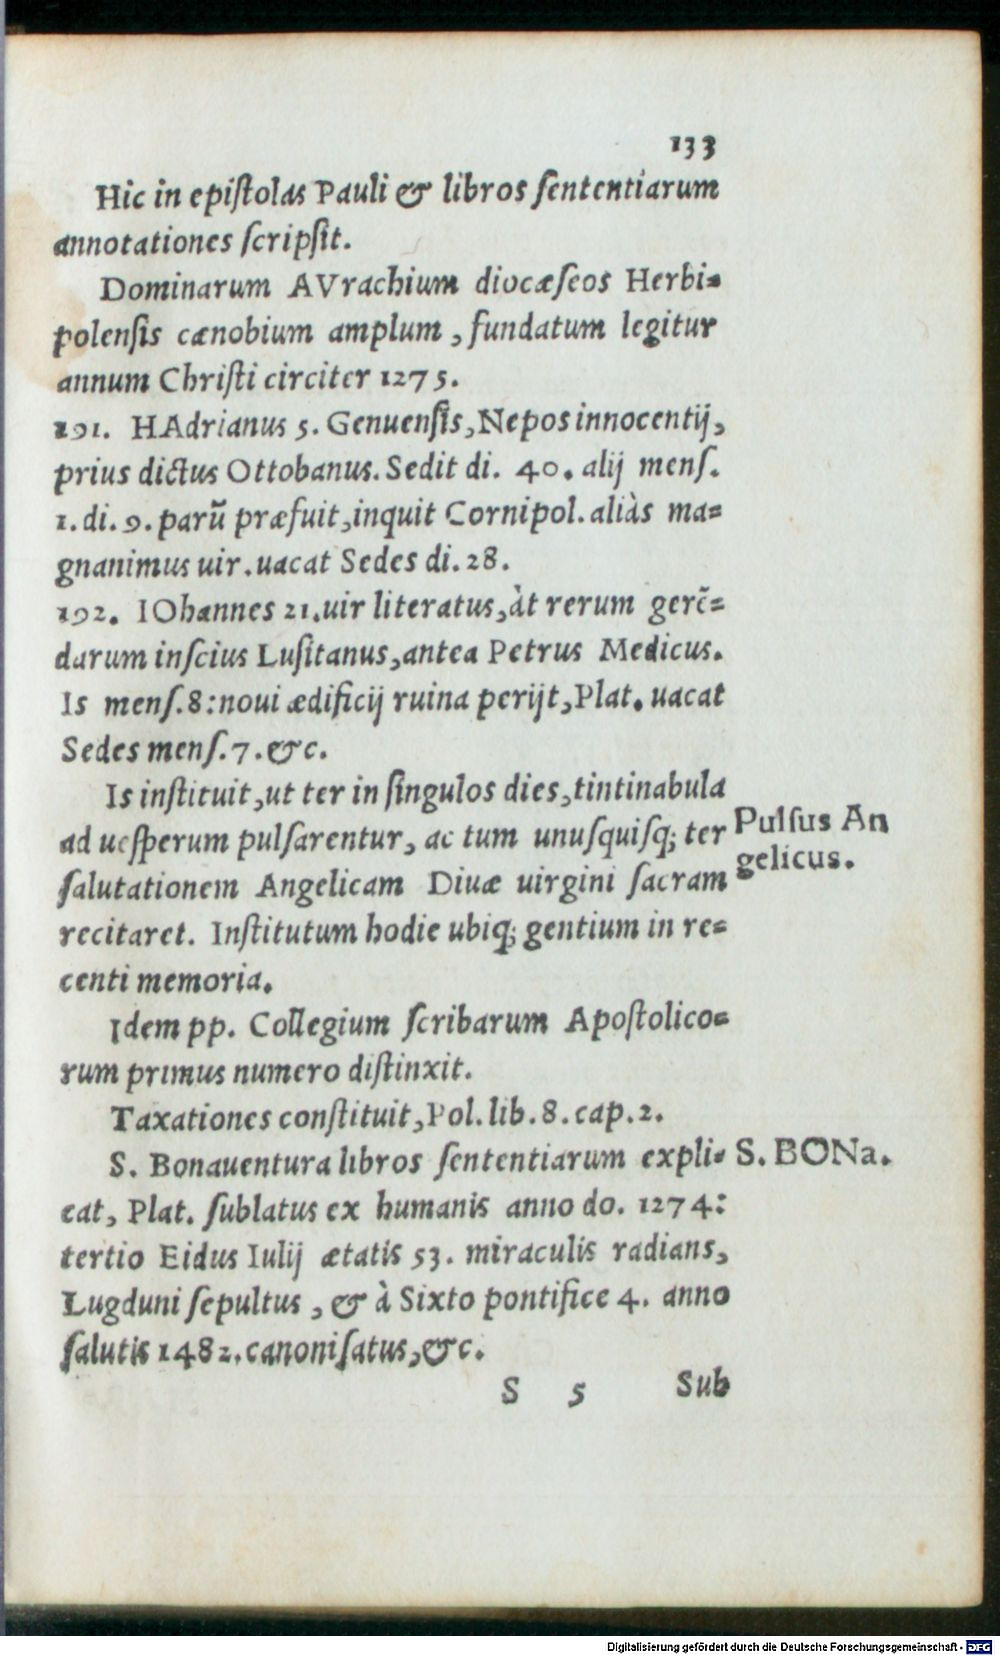 133
Hic in epiſtolas Pauli & libros ſententiarum
annotationes ſcripſit.
Dominarum AVrachium diocæſeos Herbi=
polenſis cænobium amplum, fundatum legitur
annum Chriſti circiter 1275.
191. HAdrianus 5. Genuenſis, Nepos innocentij,
prius dictus Ottobanus. Sedit di. 40. alij menſ.
1. di. 9. parũ præfuit, inquit Cornipol. aliàs ma=
gnanimus uir. uacat Sedes di. 28.
192. IOhannes 21. uir literatus, àt rerum gerẽ=
darum inſcius Luſitanus, antea Petrus Medicus.
Is menſ. 8: noui ædificij ruina perijt, Plat. uacat
Sedes menſ. 7. &c.
Is inſtituit, ut ter in ſingulos dies, tintinabula
ad ueſperum pulſarentur, ac tum unuſquiſq; ter
Pulſus An
gelicus.
ſalutationem Angelicam Diuæ uirgini ſacram
recitaret. Inſtitutum hodie ubiq; gentium in re=
centi memoria.
Idem pp. Collegium ſcribarum Apoſtolico=
rum primus numero diſtinxit.
Taxationes conſtituit, Pol. lib. 8. cap. 2.
S. Bonauentura libros ſententiarum expli=
S. BONa.
cat, Plat. ſublatus ex humanis anno do. 1274:
tertio Eidus Iulij ætatis 53. miraculis radians,
Lugduni ſepultus, & à Sixto pontifice 4. anno
ſalutis 1482. canoniſatus, &c.
S 5 Sub
Digitalisierung gefördert durch die Deutsche Forschungsgemeinschaft - DFG